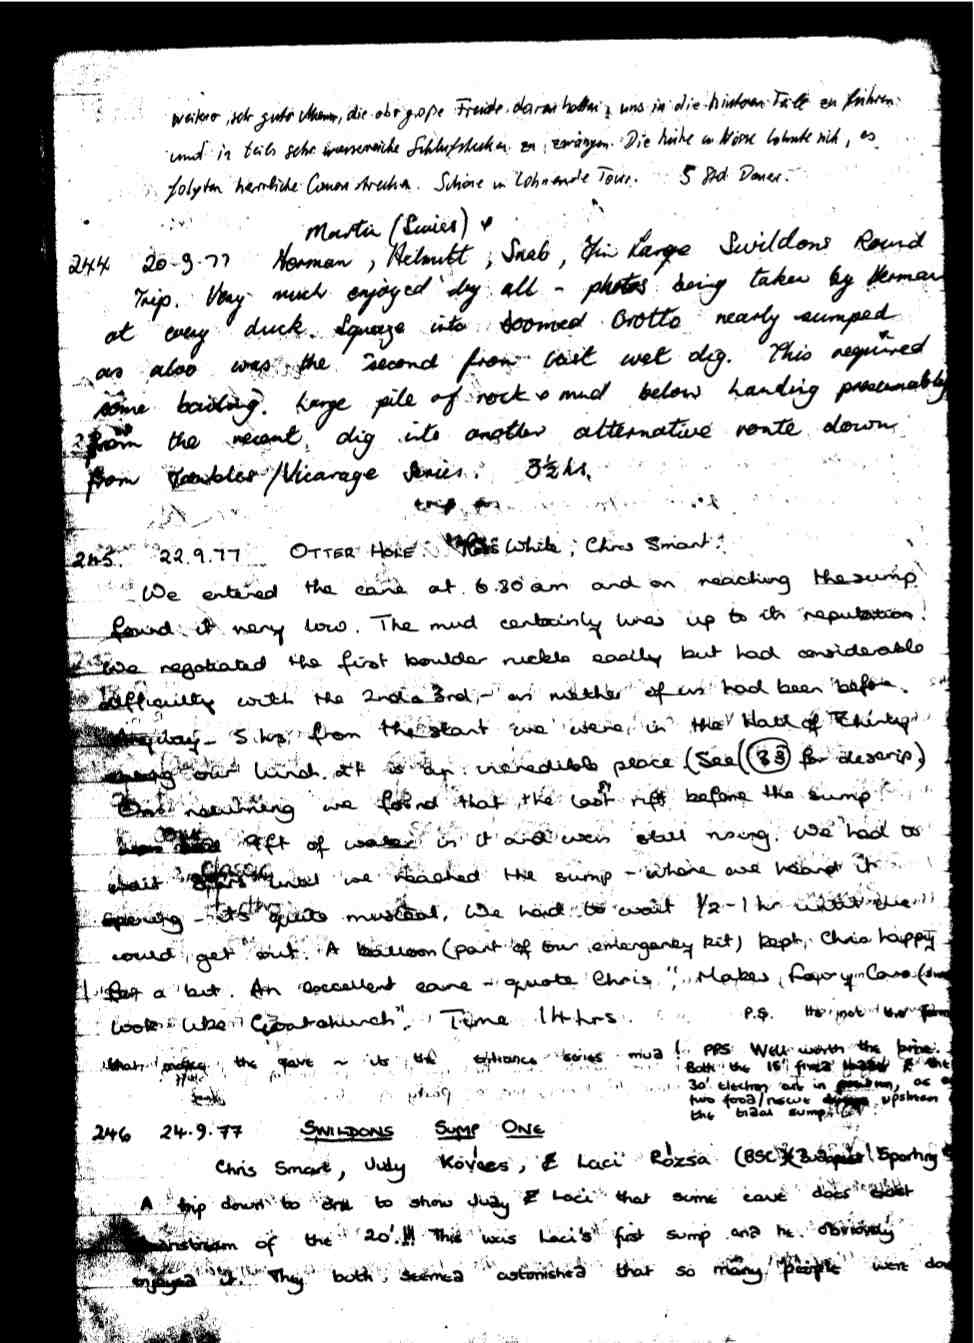 weitere, sehr gute Mann, die aber große Freude daran hatten, uns in die hinteren Teile zu führen
und in teils sehr wasserreiche Schlufstrecken zu zwängen. Die Mühe u. Nässe lohnte sich, es
folgten herrliche Canonstrecken. Schöne u. lohnende Tour. 5 Std Dauer.
Martin (Swiss) &
244 20-9-77 Norman, Helmutt, Snab, Jim Large Swildons Round
Trip. Very much enjoyed by all - photos being taken by Herman
at every duck. Squeeze into Doomed Grotto nearly sumped
as also was the second from last wet dig. This required
some bailing. Large pile of rock & mud below Landing presumably
from the recent dig into another alternative route down
from Troubles/Vicarage Series. 3½ hrs.
trip
245. 22.9.77 OTTER HOLE White, Chris Smart.
We entered the cave at 6.30am and on reaching the sump
found it very low. The mud certainly lives up to its reputation.
We negotiated the first boulder ruckle easily but had considerable
difficulty with the 2nd & 3rd, - as neither of us had been before.
Anyway - 5 hrs from the start we were in the Hall of Thirty
our lunch. It is an incredible place (See (33) for descrip)
On returning we found that the last rift before the sump
9ft of water in it and was still rising. We had to
wait until we reached the sump - where we heard it
opening - its quite musical, We had to wait ½-1 hr until we
could get out. A balloon (part of our emergency kit) kept Chris happy
for a bit. An excellent cave - quote Chris "Makes Fairy Cave
look like Goatchurch". Time 14 hrs. P.S. its not the
that makes the cave ~ its the entrance series mud! PPS Well worth the
Both the 15' fixed ladder & the
30' electron are in position, as
two food/rescue upstream
the tidal sump.
246 24.9.77 SWILDONS SUMP ONE
Chris Smart, Judy Kovács, & Laci Rózsa (BSC) (Budapest Sporting
A trip down to one to show Judy & Laci that some cave does exist
downstream of the 20'!!! This was Laci's first sump and he obviously
enjoyed it. They both seemed astonished that so many people were